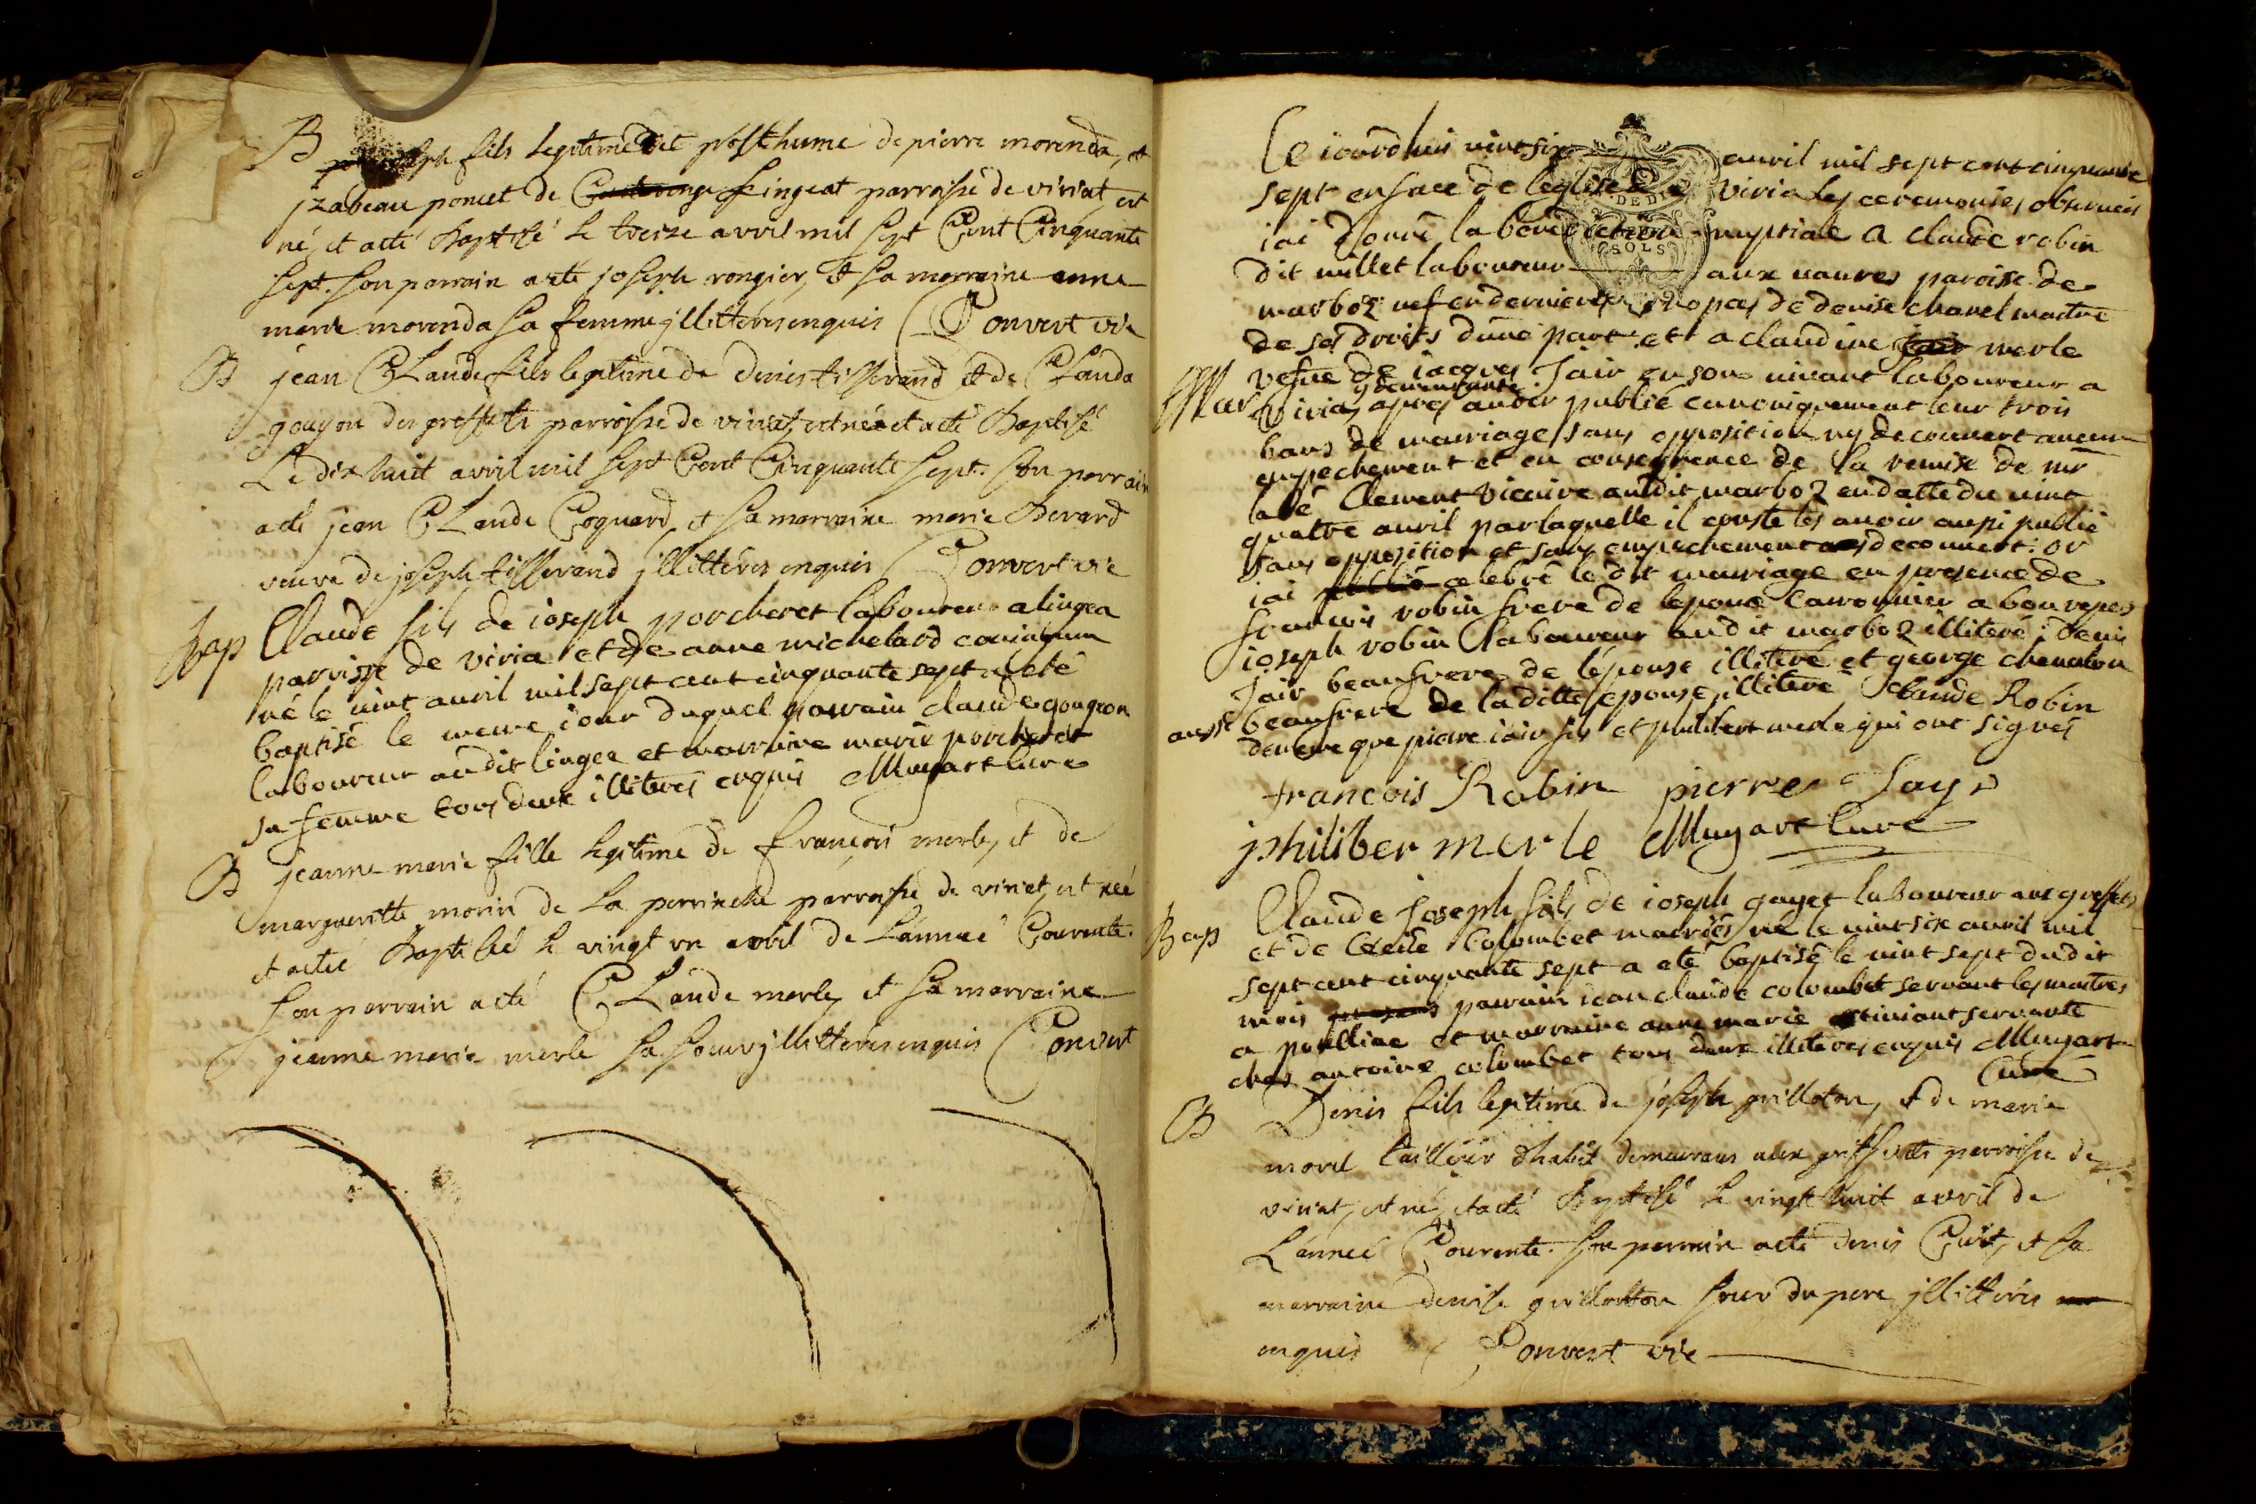 B joseph fils legitime et posthume de pierre morenda, et
jzabeau poncet de fingeat parroisse de viriat, est
né, et acté baptisé le treize avril mil sept Cent Cinquante
sept. son parrain acté joseph rongier, et sa marraine anne
marie morenda sa femme jllitterés enquis Convert vic
B jean CLaude fils legitime de denis tisserand et de CLauda
goujon des greffets parroisse de viriat, est né et acté baptisé
Le dix huit avril mil sept Cent Cinquante sept. son parrain
acté jean CLaude Coquard, et sa marraine marie berard
veuve de joseph tisserand jllitterés enquis Convert vic
Bap Claude fils de ioseph porcheret laboureur a lingea
paroisse de viria et de anne michelard coniugum
né le vint auril mil sept cent cinquante sept a eté
baptisé le meme iour duquel parrain claude gougeon
laboureur au dit lingea et marraine marie porcheret
sa femme tous deux illiterés enquis Mugart Curé
B jeanne marie fille legitime de françois merle, et de
margueritte morin de La perrinche parroisse de viriat, est neé
et acteé baptiseé le vingt un avril de L'anneé Courente.
son parrain acté CLaude merle, et sa marraine
jeanne marie merle sa soeur jllitterés enquis Convert
Ce iourdhui vint six auril mil sept cent cinquante
sept en face de leglise de viria les ceremonies obserueés
iai donné la benediction nuptiale a claude robin
dit millet laboureur aux vaures paroisse de
marboz vef en dernieres nopces de denise chanel maitre
de ses droits d'une part et a claudine merle
Mar vefue de iacques Jair en son uiuant laboureur a
viria y demeurante apres auoir publié canoniquement leur trois
bans de mariage sans opposition ny decouvert aucun
enpechement et en consequence de la remise de mr
labé Clement vicaire audit marboz en datte du vint
quatre auril par laquelle il conste les auoir aussi publié
sans opposition et sans enpechement decouuert: or
iai celebré le dit mariage en presence de
francois robin frere de lepoux a bourepos
ioseph robin laboureur audit marboz illiteré, Denis
Jair beaufrere de l'épouse illiteré et george chenalon
aussi beaufrere de laditte epouse, illiteré Claude Robin
de meme que pierre iair fils et philibert merle qui ont signés
francois Robin pierre Jayr
philiber merle Mugart Curé
Bap Claude Joseph fils de ioseph gayet laboureur aux greffets
et de Cecile Colombet mariés né le vint six auril mil
sept cent cinquante sept a eté baptisé le vint sept dudit
mois parrain iean claude colombet servant les maitres
a polliac et marraine anne marie servante
ches antoine colombet tous deux illiterés enquis Mugart
Curé
B Denis fils legitime de joseph grilloton, et de marie
morel tailleur dhabit demeurans aux greffets parroisse de
viriat, est né, et acté baptisé le vingt huit avril de
L'anneé Courente. son parrain acté denis Curt, et sa
marraine denise grilloton soeur du pere jllitterés
enquis Convert vic
DE DI
SOLS